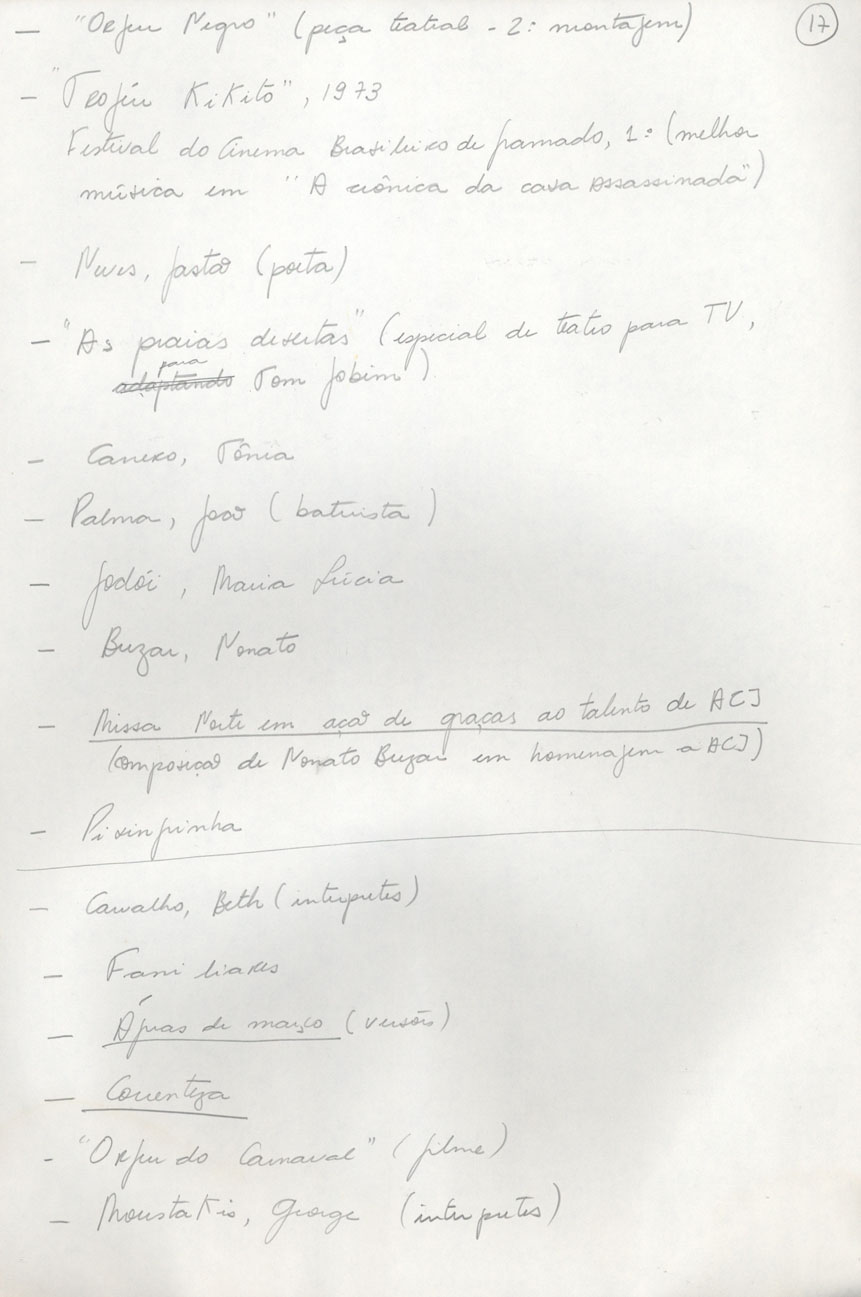 17
— "Orfeu Negro" (peça teatral - 2ª montagem)
— "Troféu Kikito", 1973
Festival do Cinema Brasileiro de Gramado, 1º (melhor
música em "A crônica da casa assassinada")
— Neves, Gastão (poeta)
— "As praias desertas" (especial de teatro para TV,
para
adaptando Tom Jobim)
— Carrero, Tônia
— Palma, João (baterista)
— Godói, Maria Lúcia
— Buzar, Nonato
— Missa Noite em ação de graças ao talento de ACJ
(composição de Nonato Buzar em homenagem a ACJ)
— Pixinguinha
— Carvalho, Beth (intérpretes)
— Familiares
— Águas de março (versões)
— Correnteza
- "Orfeu do Carnaval" (filme)
— Moustakis, George (intérpretes)